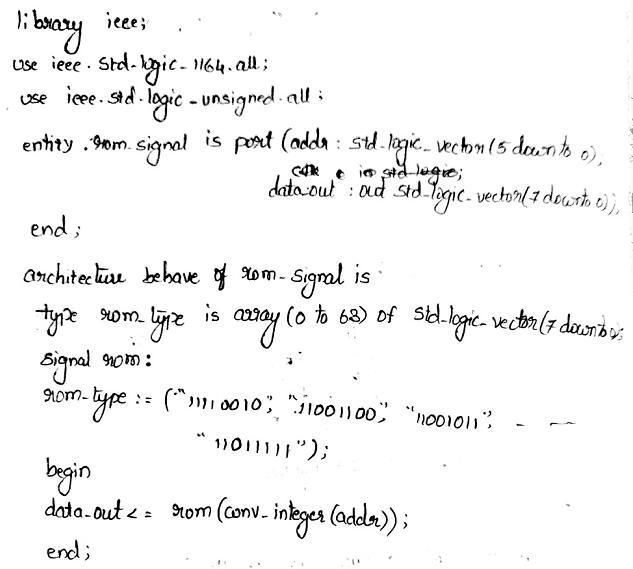 library ieee;
use ieee.std-logic-1164.all;
use ieee.std-logic-unsigned.all;
entity rom-signal is port (addr : std-logic-vector(5 downto 0),
clk in std-logic;
data-out : out std-logic-vector(7 downto 0)),
end;
architecture behave of rom-signal is
type rom-type is array (0 to 63) of std-logic-vector(7 downto 0);
signal rom:
rom-type := ("11110010", "11001100", "11001011", - —
"11011111");
begin
data-out <= rom (conv-integer (addr));
end;